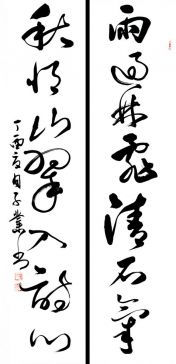 雨過林霏清石氣
秋將山翠入詩心
丁酉夏子業书